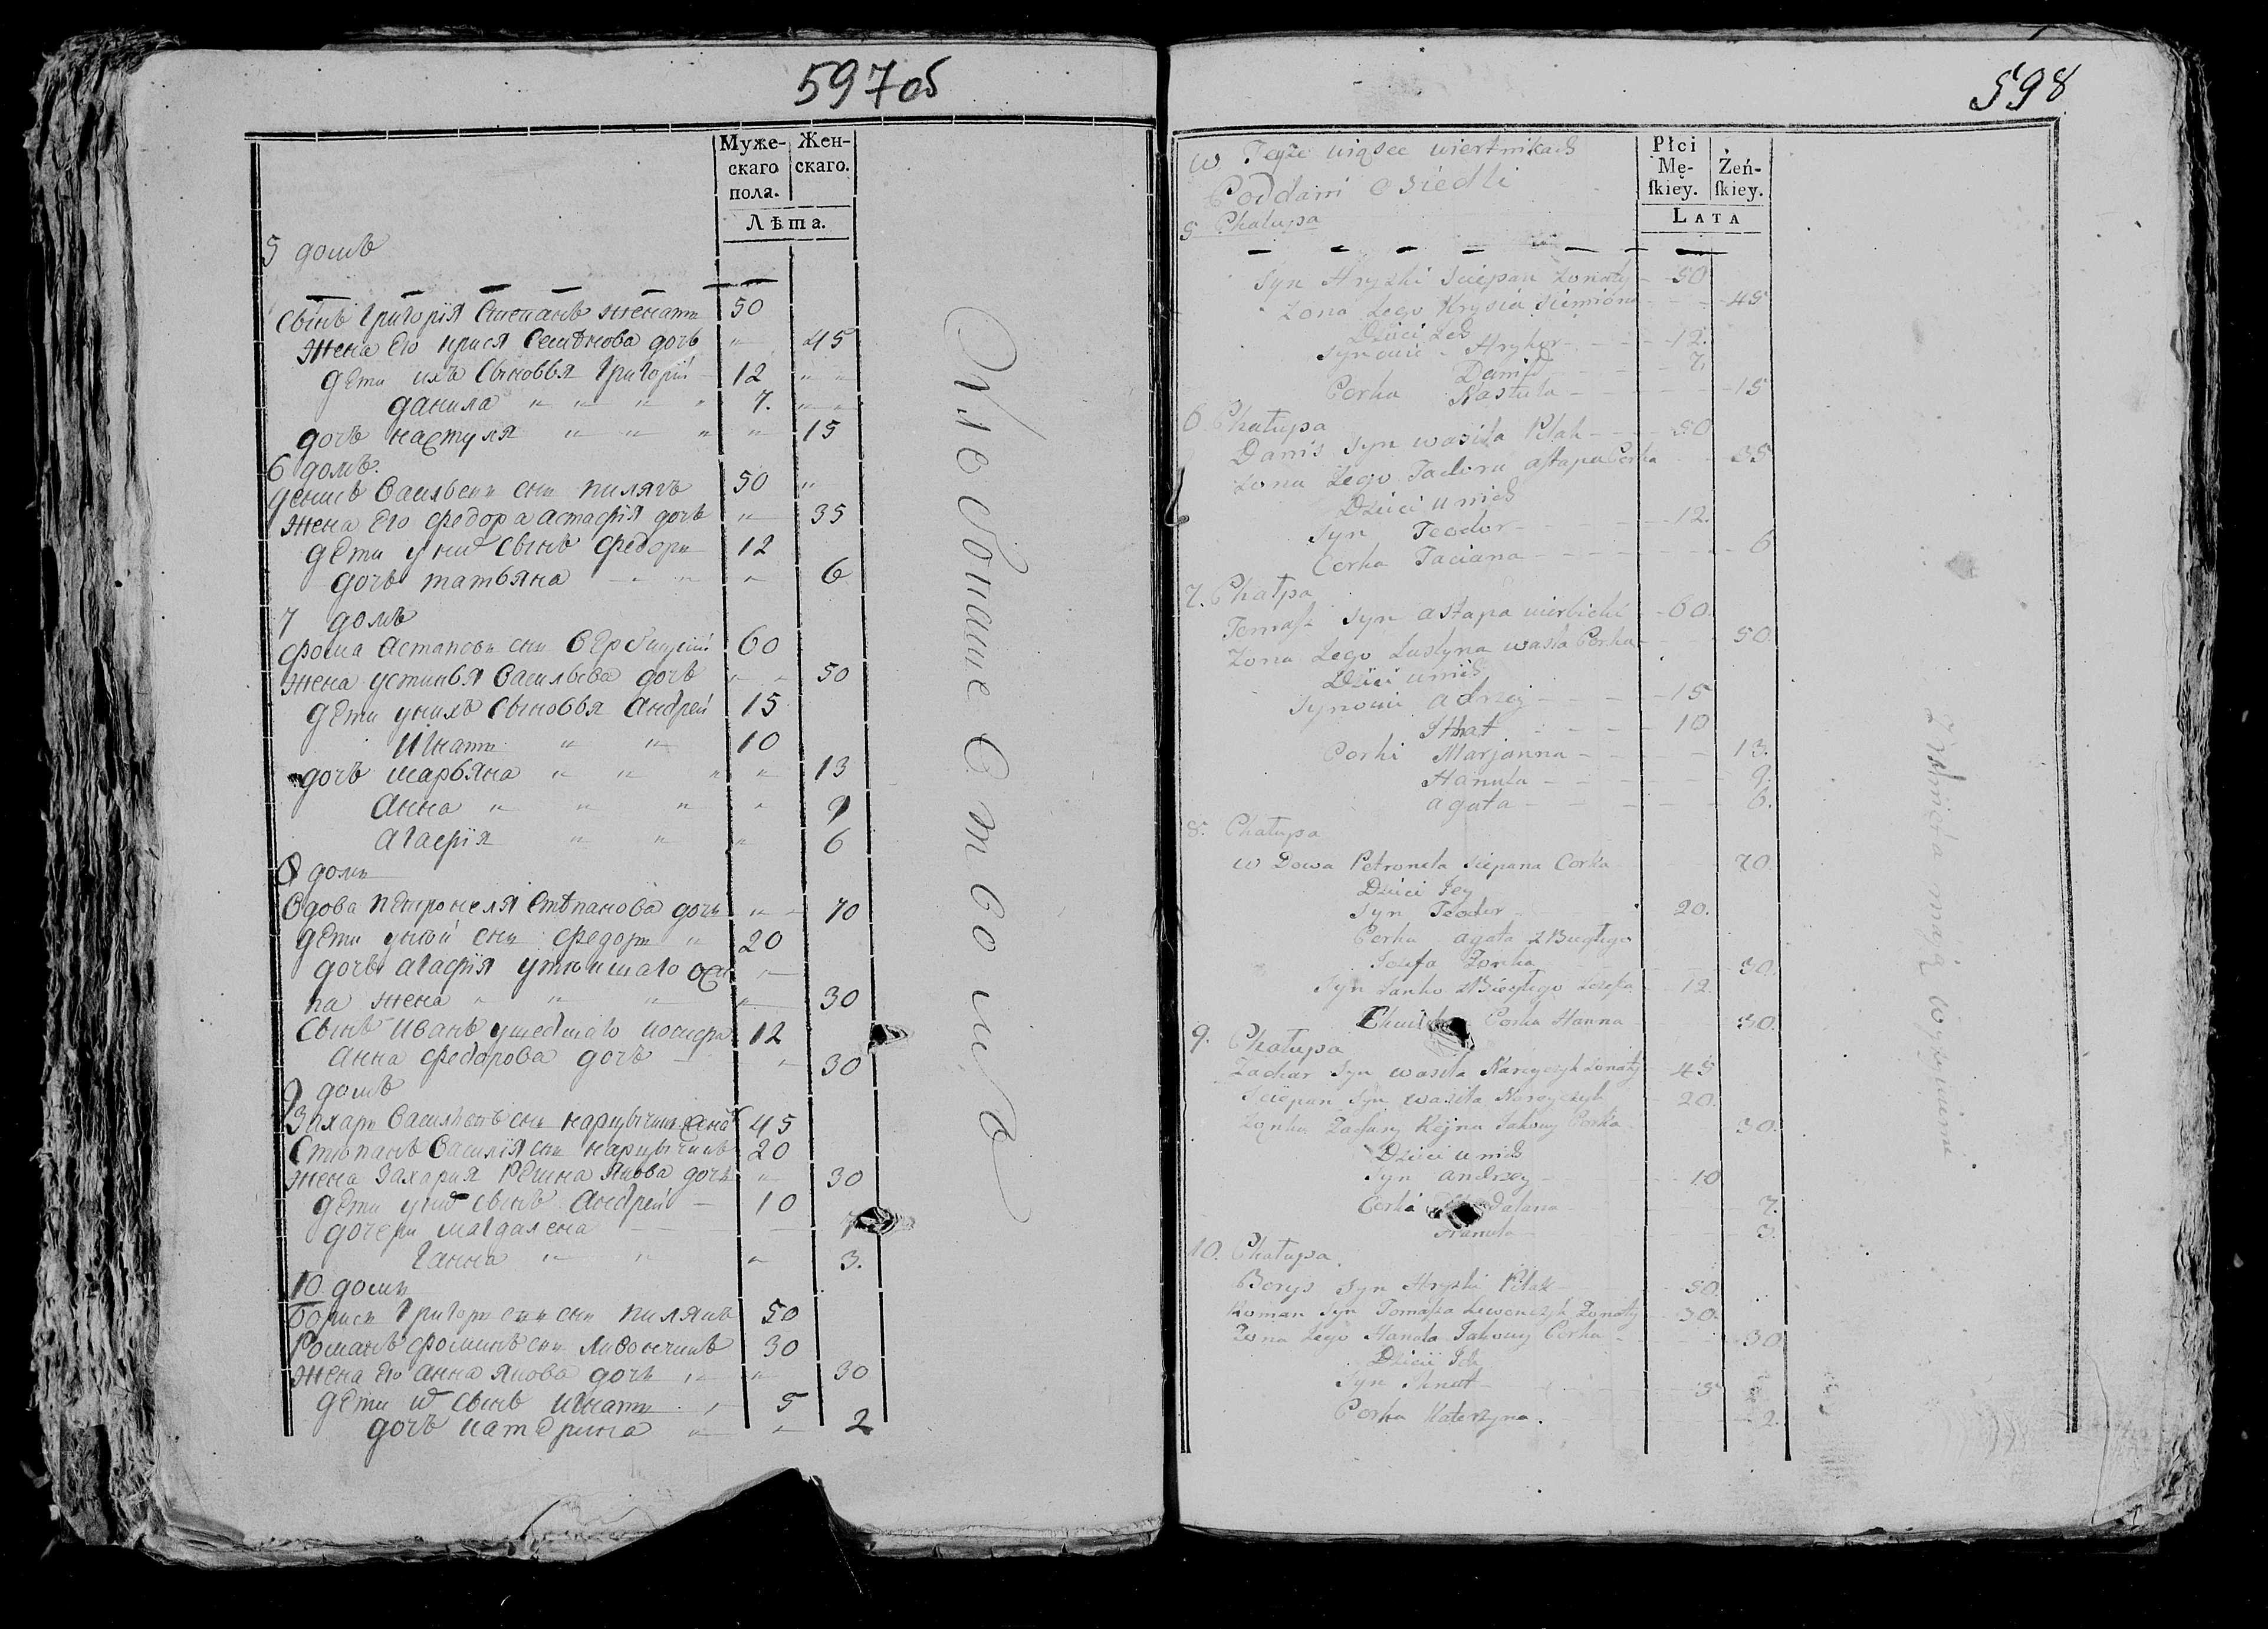 597об
Муже- Жен-
скаго скаго.
пола.
Лѣта.
5 домъ
сынъ Григорія Степанъ женатъ 50
жена Его крися Семѣнова дочь " 45
дѣти ихъ сыновья Григорій 12 " "
данила " " " " 7. " "
дочъ настуля " " " " 15
6 домъ.
денисъ Васильевъ снъ пилякъ 50 "
жена Его федора астафія дочъ " 35
дѣти у них сынъ федоръ 12
дочъ татьяна " " " 6
7 домъ
фома астаповъ снъ Вербицкій 60
жена устинья Васильева дочъ " " 50
дѣти унихъ сыновья андрей 15
Игнатъ " " 10
дочъ марьяна " " " " 13
анна " " " " 9
агафія " " " 6
8 домъ
Вдова петронеля Степанова дочъ " " 70
дѣти уней снъ федоръ " 20
дочъ агафія оси "
па жена " " " " 30
сынъ иванъ ушедшаго иосифа 12
анна федорова дочъ " 30
9 домъ
Захаръ Васильевъ снъ 45
Степанъ Василія снъ 20
жена Захарія Регина якова дочъ " 30
дѣти у них сынъ андрей 10
дочери магдалена 7
Ганна " " " 3.
10 домъ
борисъ Григорьевъ снъ пилякъ 50
Романъ фоминъ снъ 30
жена Его анна якова дочь " " 30
дѣти их сынъ игнатъ 5
дочъ катерина " " 2
598
w Teyże wiosce wiertnikach
Poddani Osiedli
Płci
Mę- Żeń-
ſkiey. ſkiey.
LATA
5 Chałupa
Syn Hryszki Sciepan Żonaty 50
Żona Jego Krysia Siemiona 45
Dzieci Ich
Synowie Hryhor 12.
Daniło 7.
Corka Nastula 15
6. Chałupa
Danis Syn wasila Pilak 50
Żona Jego Fadora astapa Corka 35
Dzieci u nich
Syn Teodor 12.
Corka Taciana 6
7. Chałpa
Tomasz Syn astapa wierbicki 60.
Żona Jego Justyna wasila Corka 50.
Dzieci u nich
Synowie adrzey 15
Ihnat 10
Corki Marjanna 13.
Hanula 9.
agata 6.
8. Chałupa
w Dowa Petronela Sciepana Corka 70.
Dzieci Jey
Syn Teodor 20.
Corka agata zbiegłego
Jozefa Żonka 30.
Syn Janko zbiegłego Jozefa 12.
Corka Hanna 30.
9. Chałupa
Zachar Syn wasila Żonaty 45
Sciepan Syn wasila 20.
Żonka Zachary Rejna Jakowy Corka 30.
Dzieci u nich
Syn andrzey 10
Corki 7.
Hanula 3.
10. Chałupa.
Borys Syn Hryszki Pilak 50.
Roman Syn Tomasza Żonaty 30.
Żona Jego Hanula Jakowy Corka 30
Dzieci Ich
Syn Ihnat 5
Corka Katerzyna. 2.